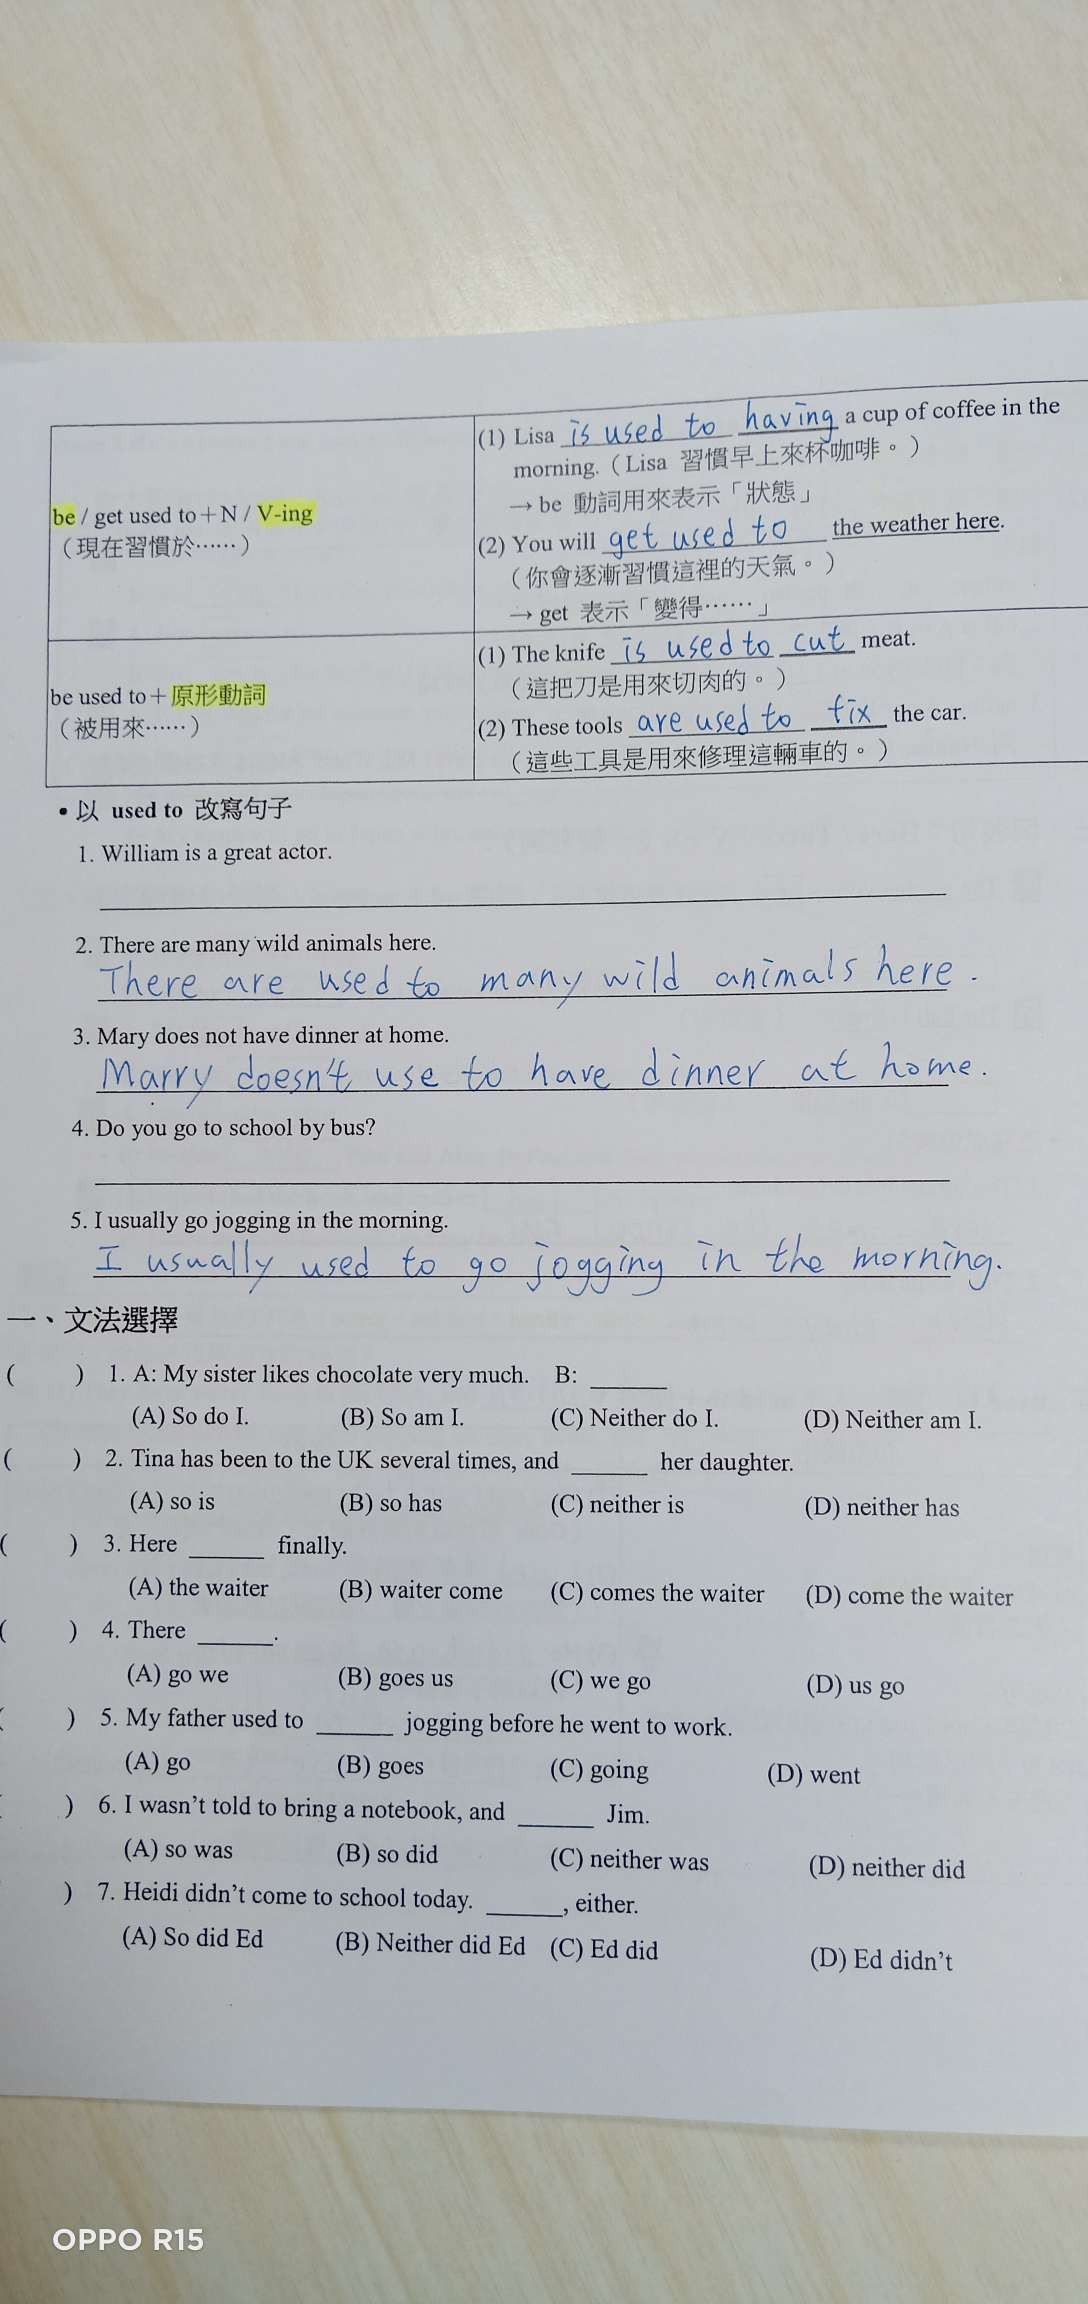 be / get used to＋N / V-ing
（現在習慣於……）
(1) Lisa is used to having a cup of coffee in the
morning.（Lisa 習慣早上來杯咖啡。）
→ be 動詞用來表示「狀態」
(2) You will get used to the weather here.
（你會逐漸習慣這裡的天氣。）
→ get 表示「變得……」
be used to＋原形動詞
（被用來……）
(1) The knife is used to cut meat.
（這把刀是用來切肉的。）
(2) These tools are used to fix the car.
（這些工具是用來修理這輛車的。）
• 以 used to 改寫句子
1. William is a great actor.
2. There are many wild animals here.
There are used to many wild animals here.
3. Mary does not have dinner at home.
Marry doesn't use to have dinner at home.
4. Do you go to school by bus?
5. I usually go jogging in the morning.
I usually used to go jogging in the morning.
一、文法選擇
( ) 1. A: My sister likes chocolate very much. B: ______
(A) So do I. (B) So am I. (C) Neither do I. (D) Neither am I.
( ) 2. Tina has been to the UK several times, and ______ her daughter.
(A) so is (B) so has (C) neither is (D) neither has
( ) 3. Here ______ finally.
(A) the waiter (B) waiter come (C) comes the waiter (D) come the waiter
( ) 4. There ______.
(A) go we (B) goes us (C) we go (D) us go
( ) 5. My father used to ______ jogging before he went to work.
(A) go (B) goes (C) going (D) went
) 6. I wasn't told to bring a notebook, and ______ Jim.
(A) so was (B) so did (C) neither was (D) neither did
) 7. Heidi didn't come to school today. ______, either.
(A) So did Ed (B) Neither did Ed (C) Ed did (D) Ed didn't
OPPO R15